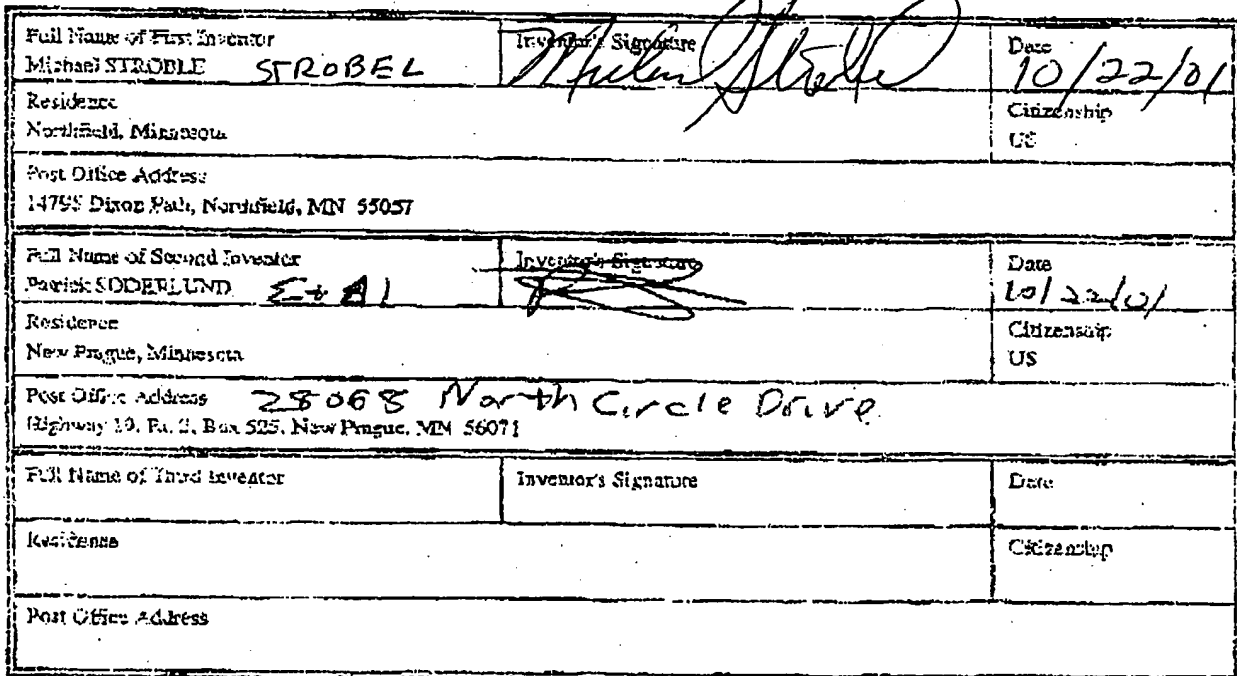 Full Name of First Inventor
Michael STROBLE STROBEL
Inventor's Signature
Date
10/22/01
Residence
Northfield, Minnesota
Citizenship
US
Post Office Address
14795 Dixon Path, Northfield, MN 55057
Full Name of Second Inventor
Patrick SODERLUND Et Al
Inventor's Signature
Date
10/22/01
Residence
New Prague, Minnesota
Citizenship
US
Post Office Address 28068 North Circle Drive
Highway 19, Box 525, New Prague, MN 56071
Full Name of Third Inventor
Inventor's Signature
Date
Residence
Citizenship
Post Office Address